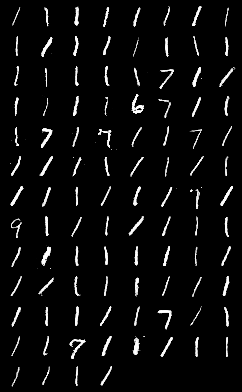 1 1 1 1 1 1 1 1
1 1 1 1 1 1 1 1
1 1 1 1 1 7 1 1
1 1 1 1 6 7 1 1
1 7 1 7 1 1 7 1
1 1 1 1 1 1 1 1
1 1 1 1 1 1 7 1
9 1 1 1 1 1 1 1
1 1 1 1 1 1 1 1
1 1 1 1 1 1 1 1
1 1 1 1 1 7 1 1
1 1 7 1 1 1 1 1
1 1 1 1